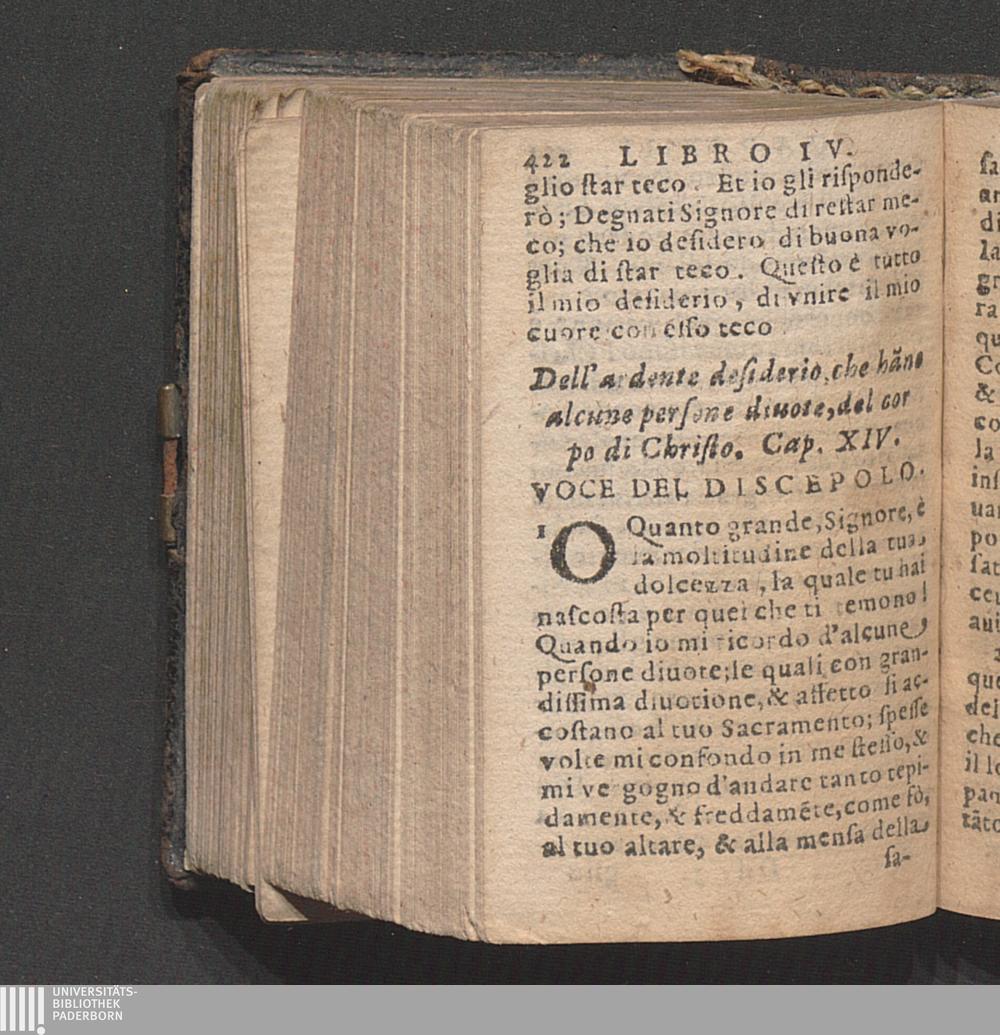 422 LIBRO IV.
glio ſtar teco. Et io gli riſponde-
rò; Degnati Signore di reſtar me-
co; che io deſidero di buona vo-
glia di ſtar teco. Queſto è tutto
il mio deſiderio, di vnire il mio
cuore con eſſo teco
Dell'ardente deſiderio, che hãno
alcune perſone diuote, del cor
po di Chriſto. Cap. XIV.
VOCE DEL DISCEPOLO.
1 O Quanto grande, Signore, è
la moltitudine della tua
dolcezza, la quale tu hai
naſcoſta per quei che ti temono!
Quando io mi ricordo d'alcune,
perſone diuote; le quali con gran-
diſſima diuotione, & affetto ſi ac-
coſtano al tuo Sacramento; ſpeſſe
volte mi confondo in me ſteſſo, &
mi vergogno d'andare tanto tepi-
damente, & freddamẽte, come fò,
al tuo altare, & alla menſa della
ſa-
ſa
di
la
gr
ra
qu
Co
&
co
la
inſ
uan
po
ſat
ceu
aui
que
del
che
il lo
tãto
UNIVERSITÄTS-
BIBLIOTHEK
PADERBORN